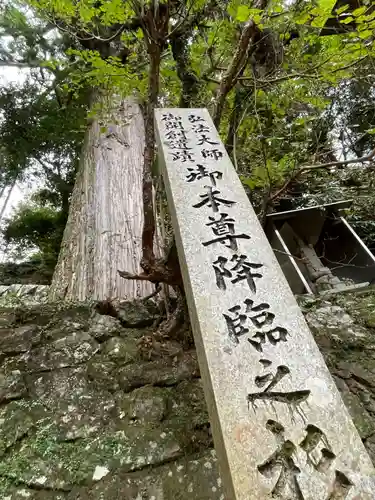 弘法大師
御開創遺蹟
御本尊降臨之杉